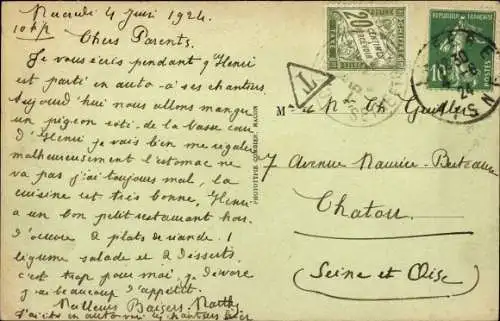 Mercredi 4 Juin 1924.
10 h/2
Chers Parents.
Je vous écris pendant q. Henri
est parti en auto à ses chantiers
Aujourd'hui nous allons manger
un pigeon de la basse cour
d'Henri je vais bien me régaler
malheureusement l'estomac ne
va pas j'ai toujours mal, la
cuisine est très bonne, Henri
a un bon petit restaurant hors
d'œuvre 2 plats de viande 1
légume salade et 2 desserts
c'est trop pour moi, q. dévore
j'ai beaucoup d'appétit.
Meilleurs Baisers. Marthe
en auto les chantiers hier
PHOTOTYPIE COMBIER MACON
20 CENTIMES
A PERCEVOIR
T
REPUBLIQUE FRANÇAISE
10
M et N Th
7 Avenue Maurice Berteaux
Chatou
(Seine et Oise)